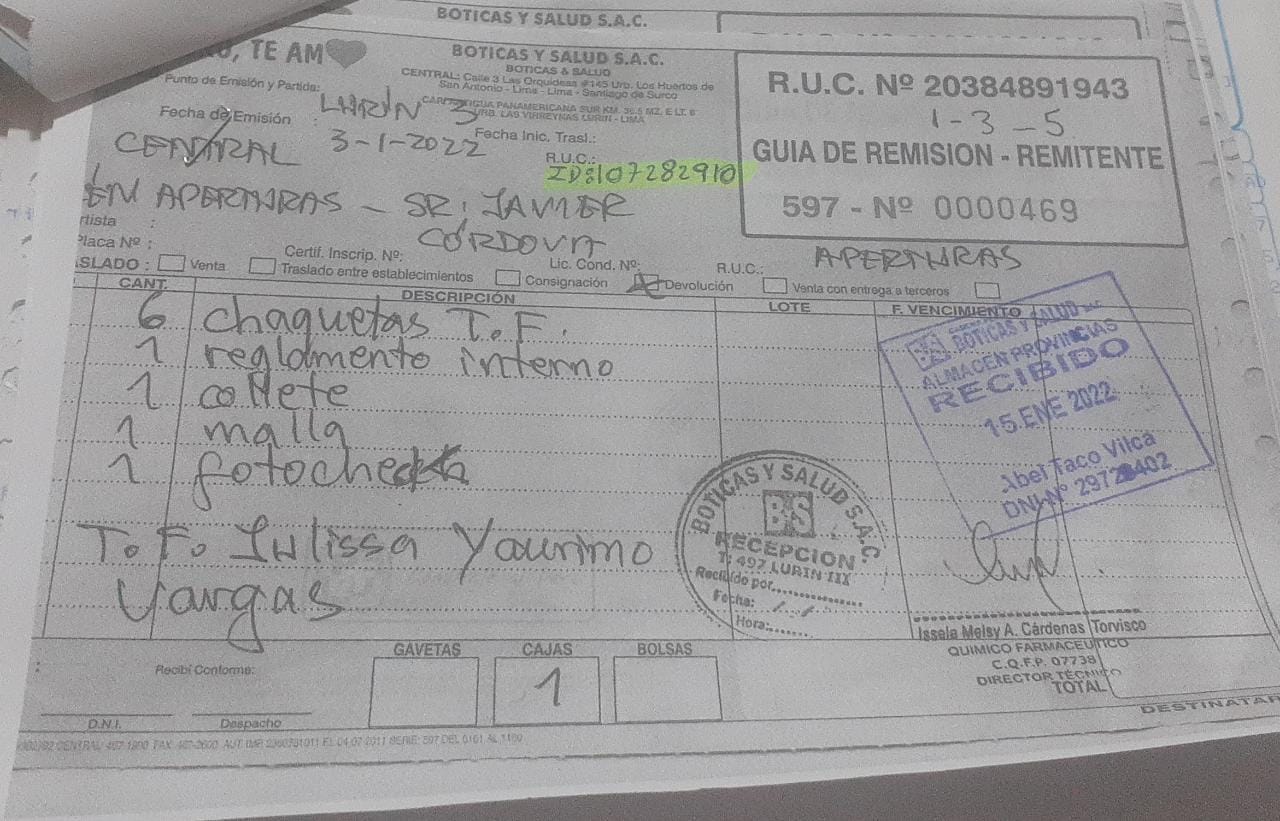 BOTICAS Y SALUD S.A.C.
TE AM
BOTICAS Y SALUD S.A.C.
BOTICAS & SALUD
Punto de Emisión y Partida:
CENTRAL: Calle 3 Las Orquideas #145 Urb. Los Huertos de
San Antonio - Lima - Lima - Santiago de Surco
LURIN 3
PANAMERICANA SUR KM. 36.5 MZ. E LT. 6
URB. LAS VIRREYNAS LURIN - LIMA
Fecha de Emisión :
3-1-2022
Fecha Inic. Trasl.:
CENTRAL
R.U.C.:
ID:107282910
EN APERTURAS - SR: JAVIER
CÓRDOVA
R.U.C. Nº 20384891943
1-3-5
GUIA DE REMISION - REMITENTE
597 - Nº 0000469
Placa Nº :
Certif. Inscrip. Nº:
Lic. Cond. Nº:
R.U.C.:
APERTURAS
ASLADO : Venta Traslado entre establecimientos Consignación Devolución Venta con entrega a terceros
CANT. DESCRIPCIÓN LOTE F. VENCIMIENTO
6 chaquetas T.F.
1 reglamento interno
1 collete
1 malla
1 fotocheck
T.F. Julissa Yaurimo
Vargas
BOTICAS Y SALUD SAC
ALMACEN PROVINCIAS
RECIBIDO
15 ENE 2022
Abel Taco Vilca
DNI Nº
BOTICAS Y SALUD S.A.C.
BS
RECEPCION
T: 497 LURIN III
Recibido por
Fecha:
Hora:
Issela Melsy A. Cárdenas Torvisco
QUIMICO FARMACEUTICO
C.Q.F.P. 07738
DIRECTOR TÉCNICO
TOTAL
GAVETAS CAJAS BOLSAS
1
Recibí Conforme:
D.N.I. Despacho
DESTINATAR